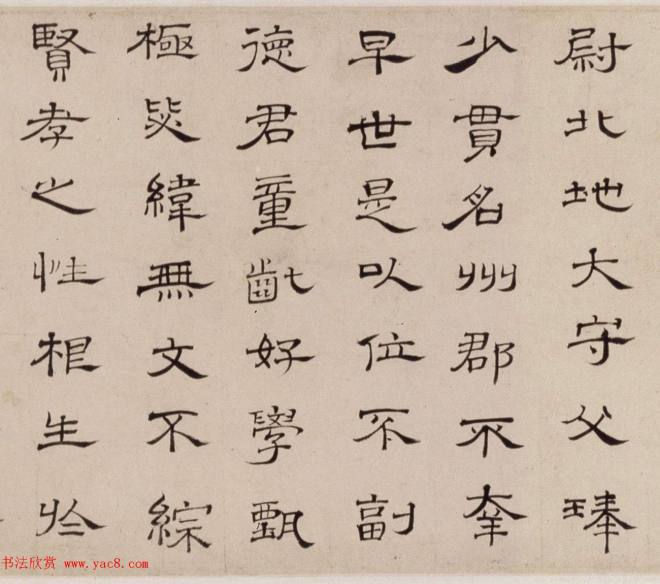 尉北地大守父琫
少貫名州郡不幸
早世是以位不副
德君童齔好學甄
極毖緯無文不綜
賢孝之性根生於
书法欣赏 www.yac8.com